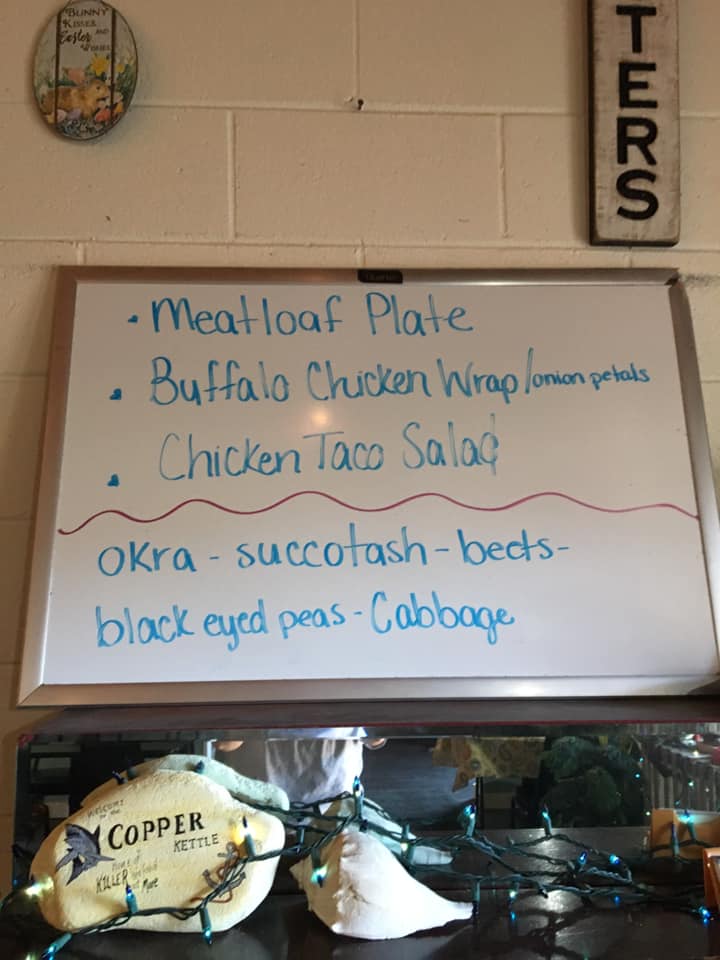 BUNNY
KISSES AND
Easter
WISHES
TERS
• Meatloaf Plate
• Buffalo Chicken Wrap/onion petals
• Chicken Taco Salad
OKra - succotash - beets-
black eyed peas - Cabbage
WELCOME
to the
COPPER
KETTLE
Home of
KILLER
More